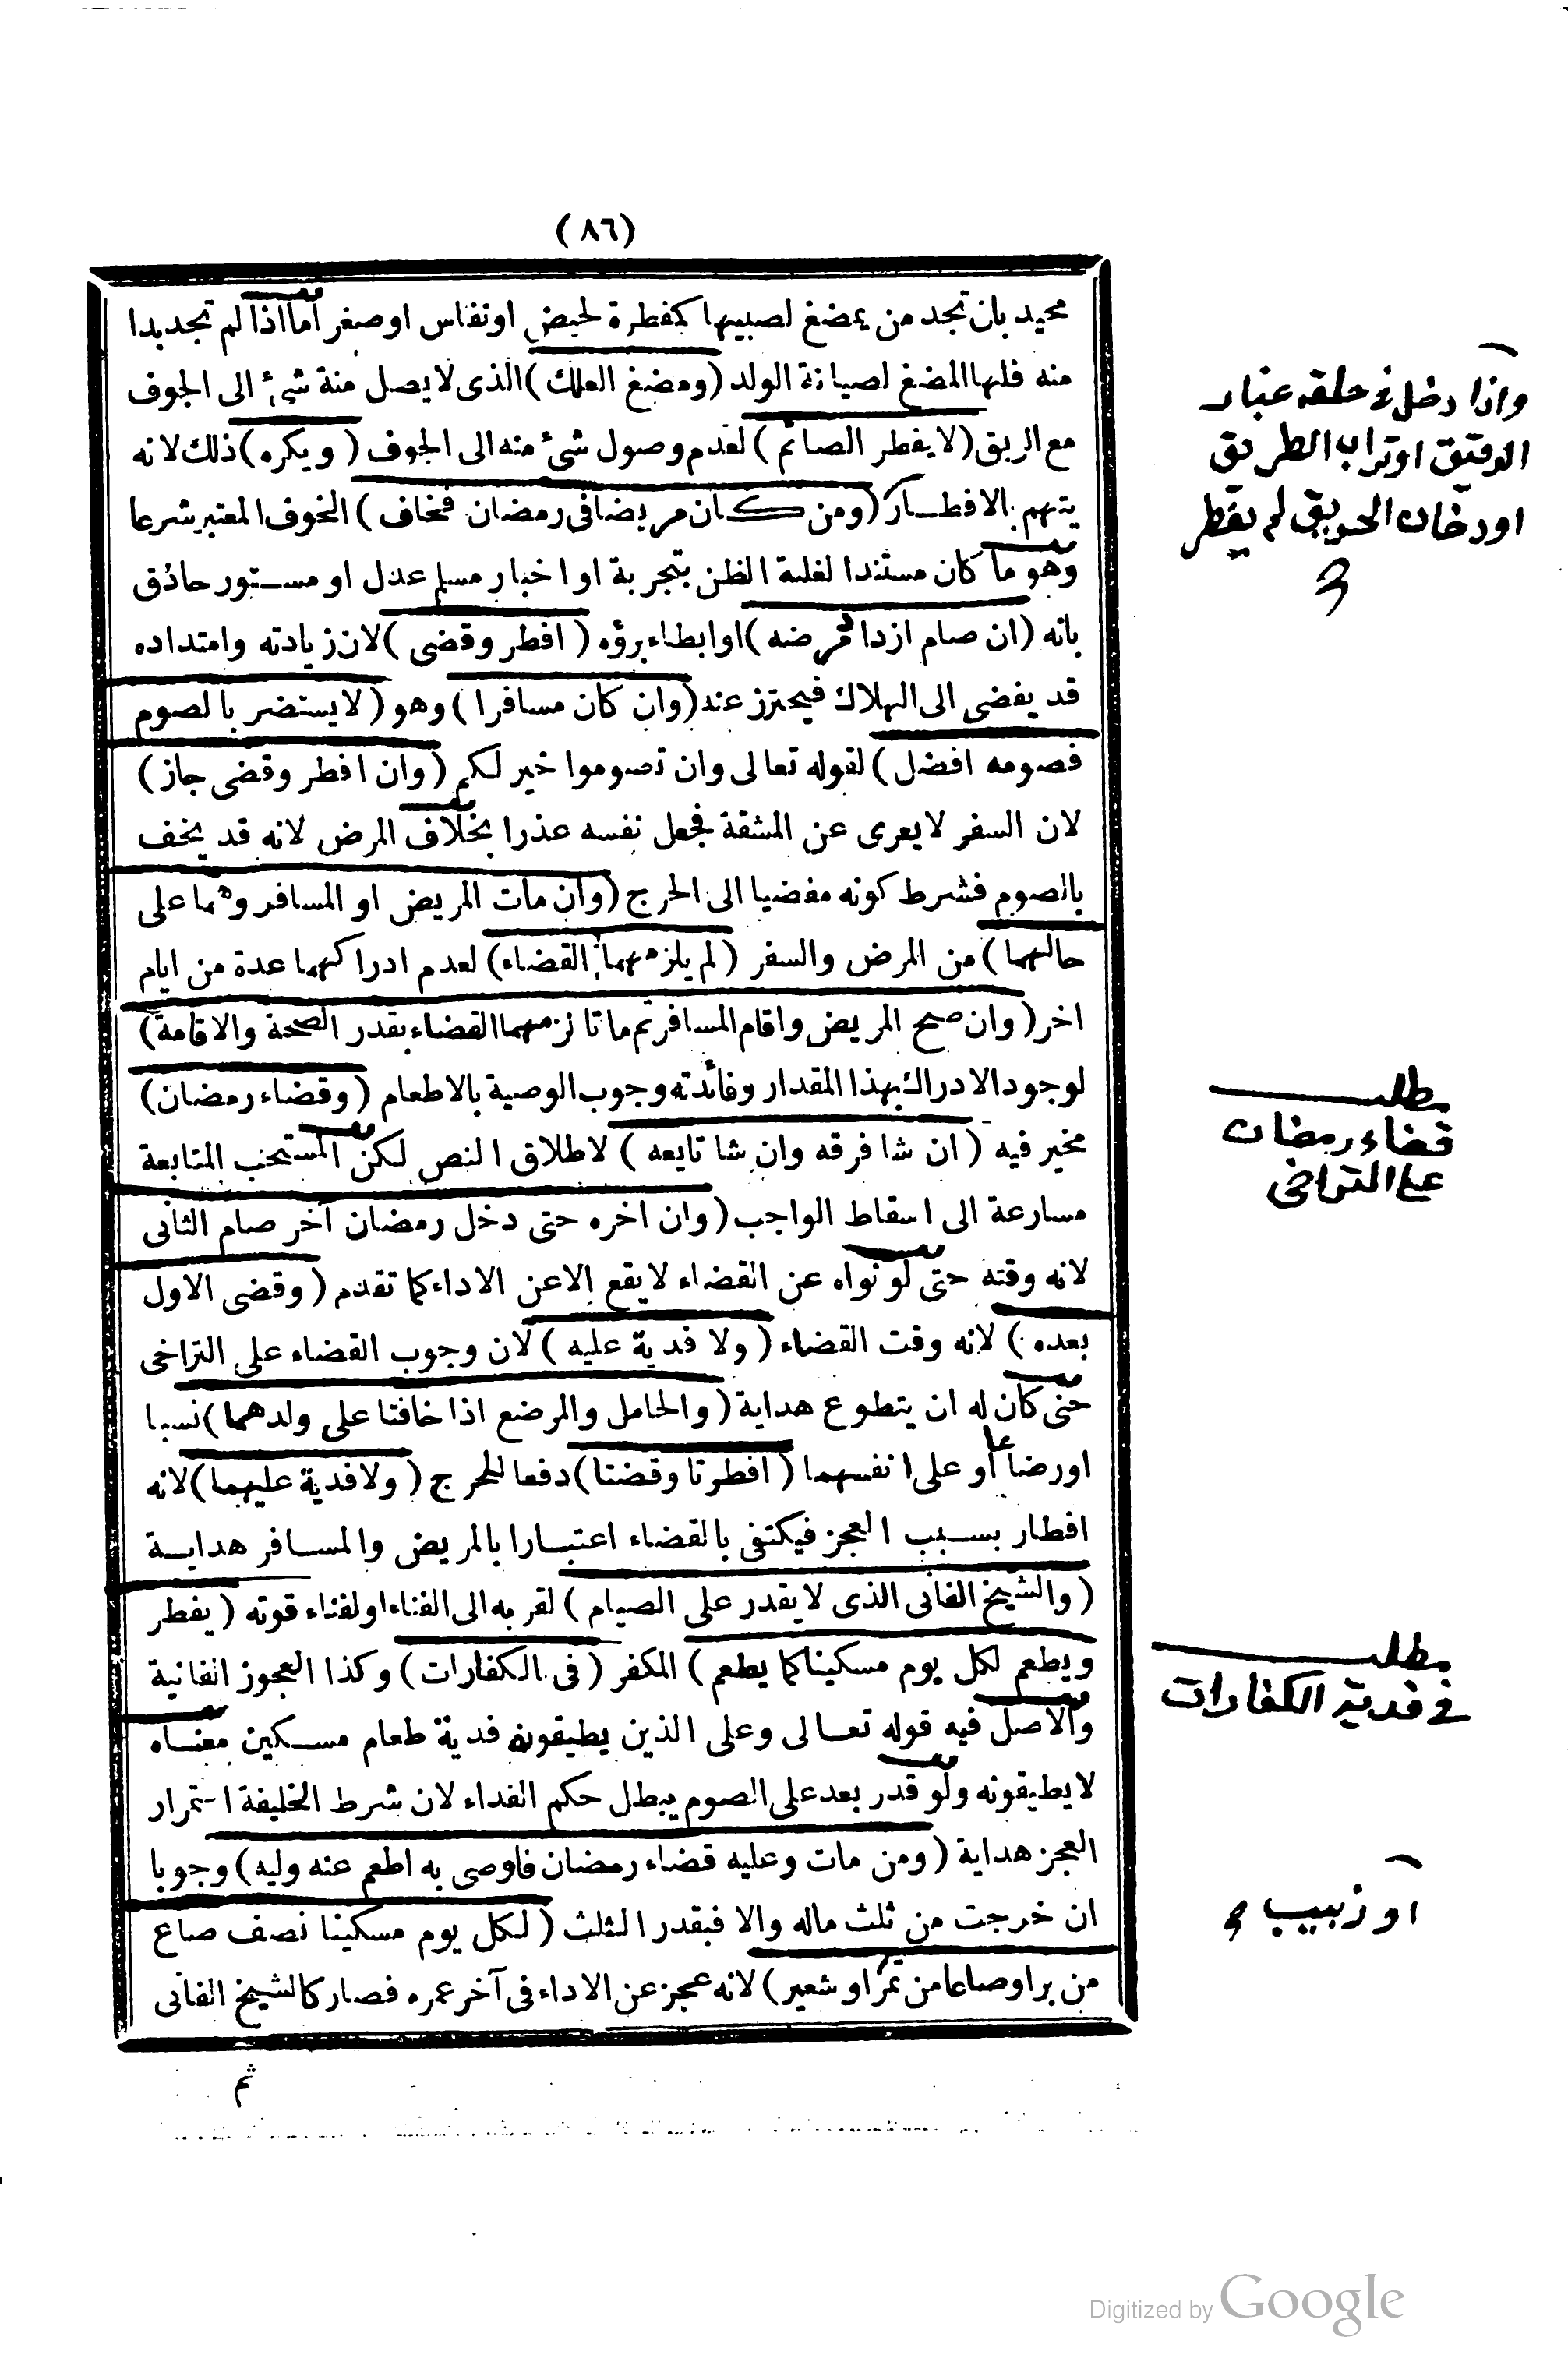 (٨٦)
محيد بان تجد من يمضغ لصبيها كمفطرة لحيض او نفاس او صغر اما اذا لم تجد بدا
منه فلها المضغ لصيانة الولد (ومضغ العلك) الذى لا يصل منة شئ الى الجوف
مع الريق (لا يفطر الصائم) لعدم وصول شئ منه الى الجوف (ويكره) ذلك لانه
يتهم بالافطار (ومن كان مريضا فى رمضان فخاف) الخوف المعتبر شرعا
وهو ما كان مستندا لغلبة الظن بتجربة او اخبار مسلم عدل او مستور حاذق
بانه (ان صام ازداد مرضه) او ابطاء برؤه (افطر وقضى) لان زيادته وامتداده
قد يفضى الى الهلاك فيحترز عند (وان كان مسافرا) وهو (لا يستضر بالصوم
فصومه افضل) لقوله تعالى وان تصوموا خير لكم (وان افطر وقضى جاز)
لان السفر لا يعرى عن المشقة فجعل نفسه عذرا بخلاف المرض لانه قد يخف
بالصوم فشرط كونه مفضيا الى الحرج (وان مات المريض او المسافر وهما على
حالهما) من المرض والسفر (لم يلزمهما القضاء) لعدم ادراكهما عدة من ايام
اخر (وان صح المريض واقام المسافر ثم ماتا لزمهما القضاء بقدر الصحة والاقامة)
لوجود الادراك بهذا المقدار وفائدته وجوب الوصية بالاطعام (وقضاء رمضان)
مخير فيه (ان شا فرقه وان شا تابعه) لاطلاق النص لكن المستحب المتابعة
مسارعة الى اسقاط الواجب (وان اخره حتى دخل رمضان آخر صام الثانى
لانه وقته حتى لو نواه عن القضاء لا يقع الا عن الاداء كما تقدم (وقضى الاول
بعده) لانه وقت القضاء (ولا فدية عليه) لان وجوب القضاء على التراخى
حتى كان له ان يتطوع هداية (والحامل والمرضع اذا خافتا على ولدهما) نسبا
او رضاعا او على انفسهما (افطرتا وقضتا) دفعا للحرج (ولا فدية عليهما) لانه
افطار بسبب العجز فيكتفى بالقضاء اعتبارا بالمريض والمسافر هداية
(والشيخ الفانى الذى لا يقدر على الصيام) لقربه الى الفناء او لفناء قوته (يفطر
ويطعم لكل يوم مسكينا كما يطعم) المكفر (فى الكفارات) وكذا العجوز الفانية
والاصل فيه قوله تعالى وعلى الذين يطيقونه فدية طعام مسكين معناه
لا يطيقونه ولو قدر بعد على الصوم يبطل حكم الفداء لان شرط الخليفة استمرار
العجز هداية (ومن مات وعليه قضاء رمضان فاوصى به اطعم عنه وليه) وجوبا
ان خرجت من ثلث ماله والا فبقدر الثلث (لكل يوم مسكينا نصف صاع
من بر او صاعا من تمر او شعير) لانه عجز عن الاداء فى آخر عمره فصار كالشيخ الفانى
ثم
واذا دخل فى حلقه غبار
الدقيق او تراب الطريق
او دخان الحريق لم يفطر
مطلب
قضاء رمضان
على التراخى
مطلب
فى فدية الكفارات
او زبيب
Digitized by Google